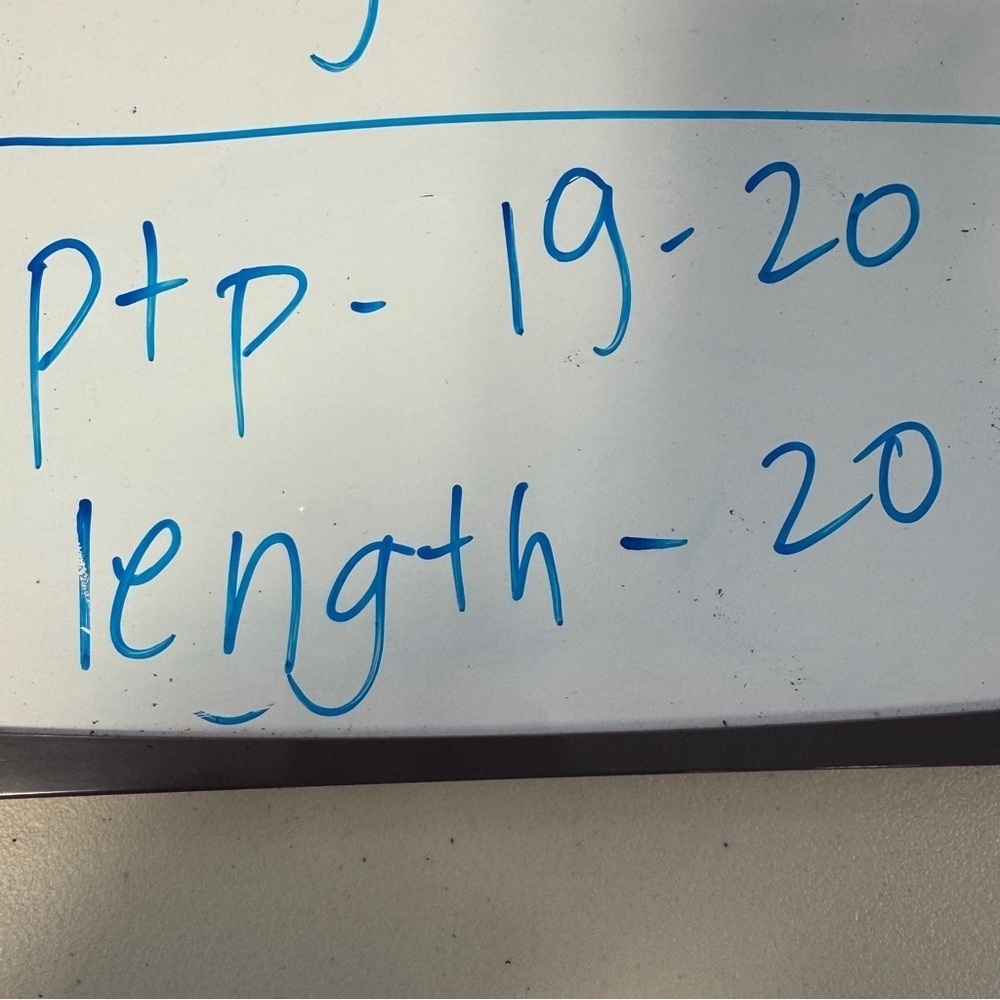 ptp - 19 - 20
length - 20